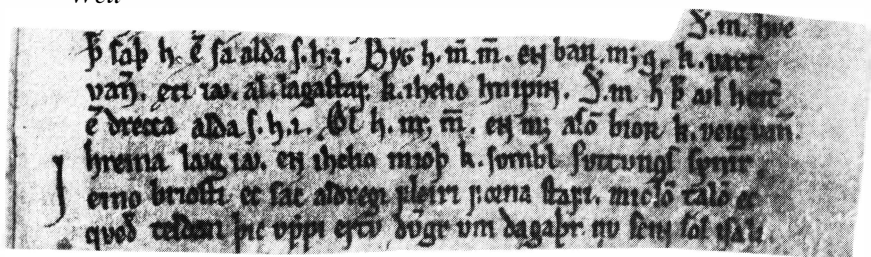 Well
S. m. hve
þ̄ sáþ h. ē sa alda s. h. i. Byg h. m̄. m̄. en barr. m; g. k. vaxt
van̄. eti iꜹ. al. lagastaf. k. i helio hnipin. S. m h þ̄ ꜹl heit̄
ē drecca alda s. h. i. Ol h. m; m̄. en m; asō bior k. veig van̄.
hreina lꜹg iꜹ. en i helio mioþ k. sumbl suttungs synir.
I eino briosti ec sac aldregi fleiri forna stafi. miclō talō ec
qveð teldan þic uppi ertu dv̄gr um dagaþr. nu scin sol i sali.